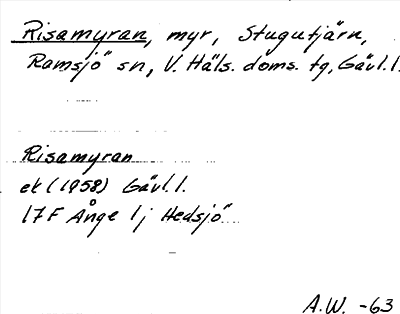 Risamyran, myr, Stugutjärn,
Ramsjö sn, V. Häls. doms. tg, Gävl. l.
Risamyran
ek (1958) Gävl. l.
17F Ånge 1j Hedsjö
A.W. -63